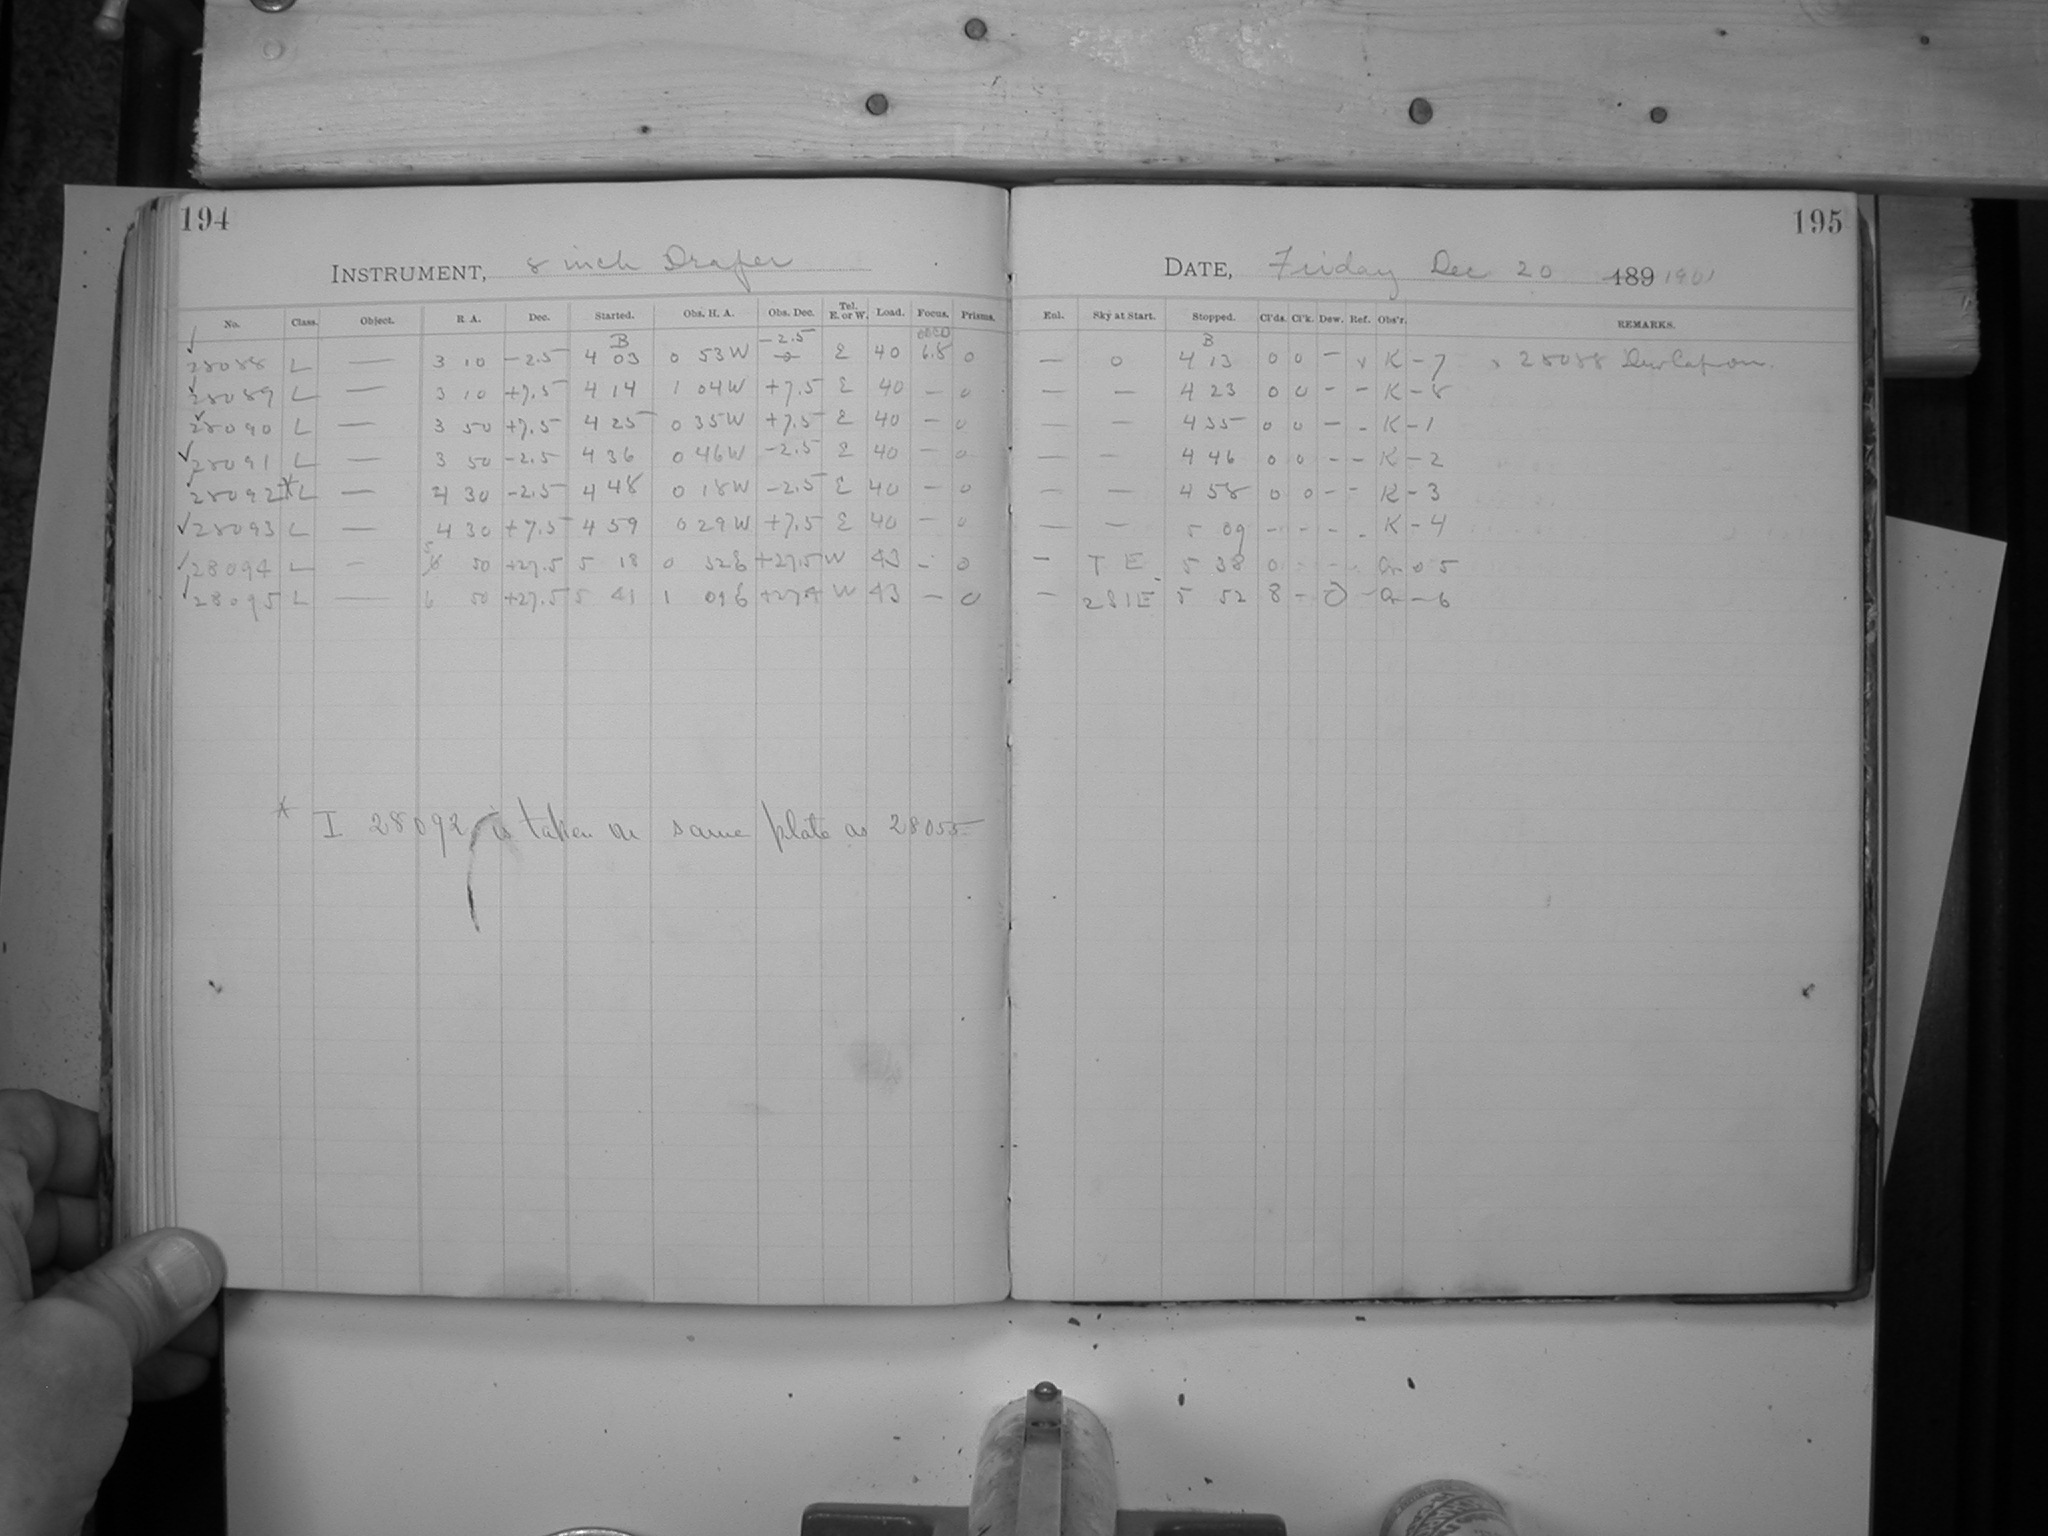 194
INSTRUMENT, 8 inch Draper
No. Class. Object. R. A. Dec. Started. Obs. H. A. Obs. Dec. Tel. E. or W. Load. Focus. Prisms.
28088 L — 3 10 -2.5 B 4 03 0 53W -2.5 E 40 6.8 0
28089 L — 3 10 +7.5 4 14 1 04W +7.5 E 40 - 0
28090 L — 3 50 +7.5 4 25 0 35W +7.5 E 40 - 0
28091 L — 3 50 -2.5 4 36 0 46W -2.5 E 40 - 0
28092* L — 4 30 -2.5 4 48 0 18W -2.5 E 40 - 0
28093 L — 4 30 +7.5 4 59 0 29W +7.5 E 40 - 0
28094 L - 5 50 +27.5 5 18 0 32E +27.5 W 43 - 0
28095 L — 6 50 +27.5 5 41 1 09E W 43 - 0
* I 28092 is taken on same plate as 28055
195
DATE, Friday Dec 20 189 1901
Enl. Sky at Start. Stopped. Cl'ds. Cl'k. Dew. Ref. Obs'r. REMARKS.
— 0 B 4 13 0 0 - x K - 7 x 28088 Dewcap on.
— — 4 23 0 0 - - K - 8
— — 4 35 0 0 - - K - 1
— — 4 46 0 0 - - K - 2
— — 4 58 0 0 - - K - 3
— — 5 09 - - - - K - 4
- T E 5 38 0 - - - 5
- 281E 5 52 8 - 0 - - 6